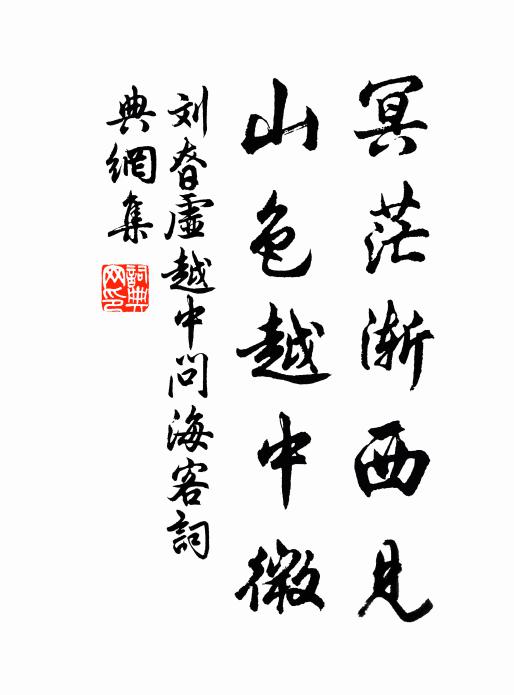 冥茫渐西見
山色越中微
刘眘虛越中問海客詞
典網集
詞典
网印